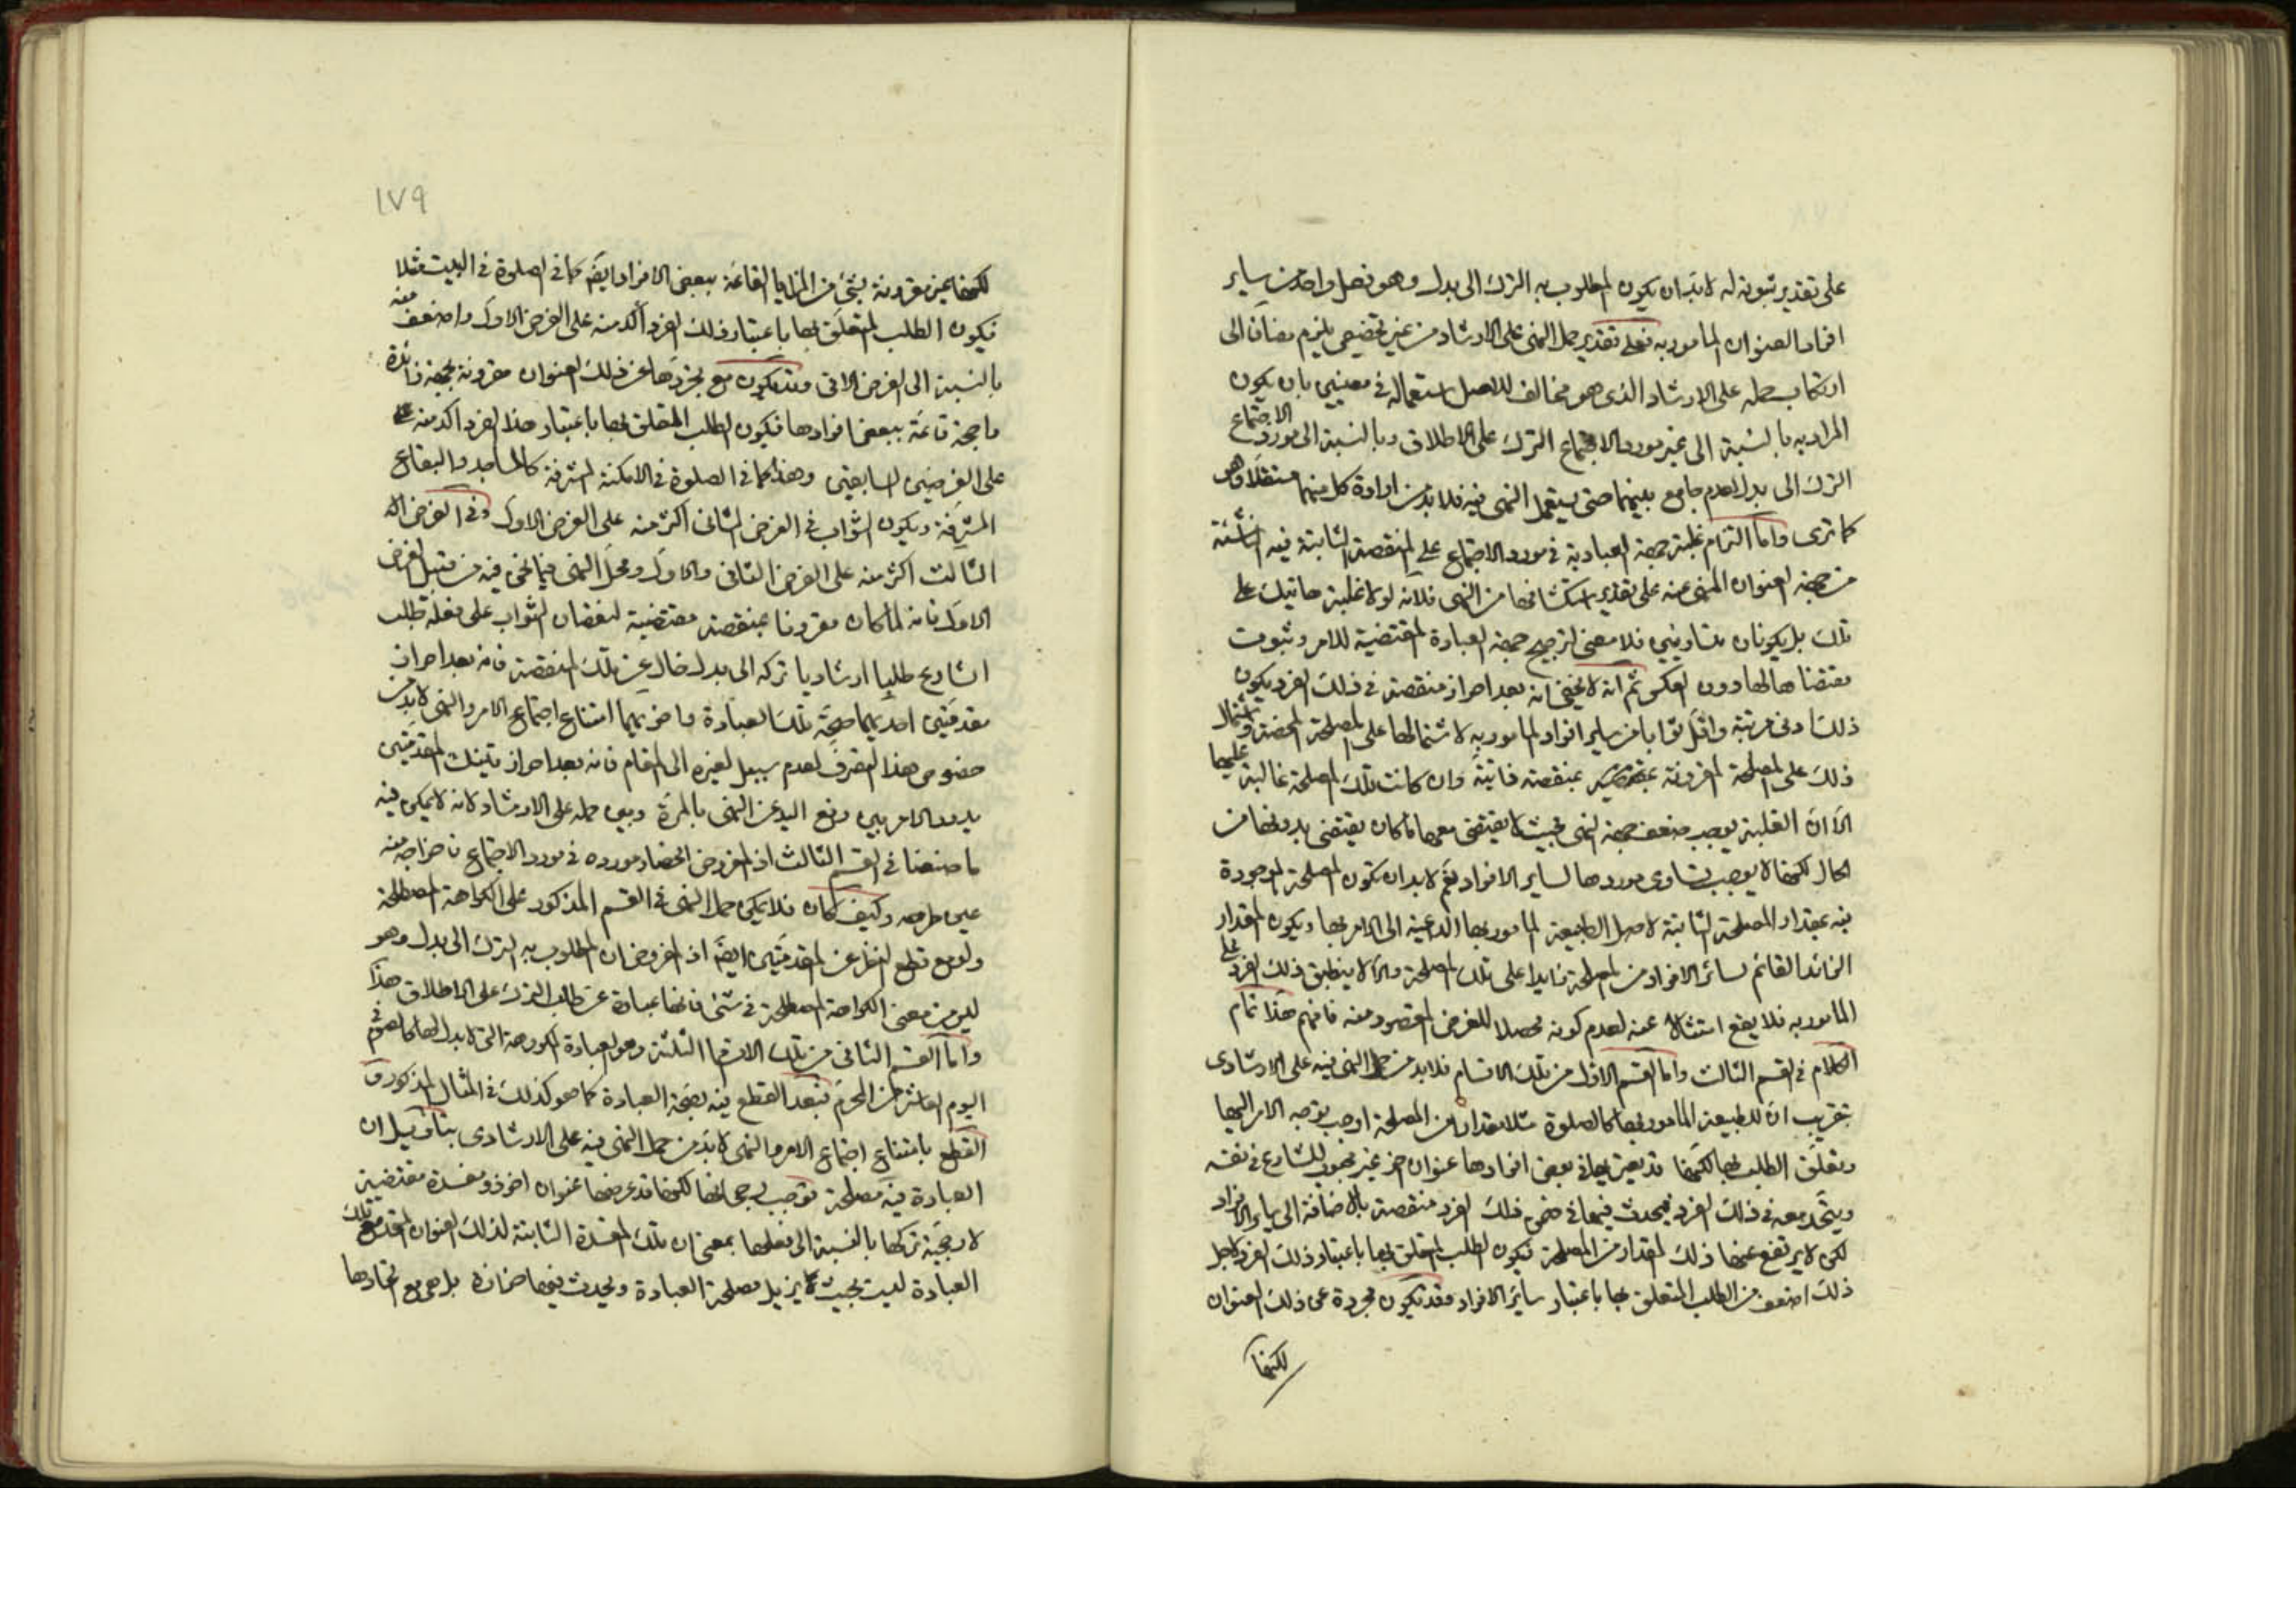 على تقدير ثبوته له لا بد ان يكون المطلوب به الترك الى بدل وهو فعل واحد من ساير
افراد العنوان المامور به فعلى تقدير حمل النهى على الارشاد من غير تخصيص يلزم مضافا الى
ارتكاب حمله على الارشاد الذى هو مخالف للاصل استعماله فى معنيين بان يكون
المراد به بالنسبة الى غير مورد الاجتماع الترك على الاطلاق وبالنسبة الى مورد الاجتماع
الترك الى بدل لعدم جامع بينهما حتى يستعمل النهى فيه فلا بد من ارادة كل منهما مستقلا وهو
كما ترى واما التزام غلبة جهة العبادية فى مورد الاجتماع على المنقصة الثابتة فيه الناشئة
من جهة العنوان المنهى عنه على تقدير استكشافها من النهى فلانه لو لا غلبة هاتيك على
تلك بل يكونان متساويين فلا معنى لترجيح جهة العبادة المقتضية للامر وثبوت
مقتضاها لها دون العكس ثم انه لا يخفى انه بعد احراز منقصة فى ذلك الفرد يكون
ذلك ادنى مرتبة واقل ثوابا من ساير افراد المامور به لاشتمالها على المصلحة المحضة واشتمال
ذلك على المصلحة المقرونة بمنقصة فانية وان كانت تلك المصلحة غالبة عليها
الا ان الغلبة يوجب ضعف جهة النهى بحيث لا يقتضى معها ما كان يقتضى بدونها من
الحال لكنها لا يوجب تساوى موردها لساير الافراد نعم لا بد ان تكون المصلحة الموجودة
فيه بمقدار المصلحة الثابتة لاصل الطبيعة المامور بها الداعية الى الامر بها ويكون المقدار
الزائد القائم لسائر الافراد من المصلحة زايدا على تلك المصلحة والا لا ينطبق ذلك الفرد على
المامور به فلا يقع امتثالا عنه لعدم كونه محصلا للغرض المقصود منه فافهم هذا تمام
الكلام فى القسم الثالث واما القسم الاول من تلك الاقسام فلا بد من حمل النهى فيه على الارشادى
بتقريب ان للطبيعة المامور بها كالصلوة مثلا مقدارا من المصلحة اوجب توجه الامر اليها
وتعلق الطلب بها لكنها قد يعتريها فى بعض افرادها عنوان اخر غير محبوب للشارع فى نفسه
ويتحد معه فى ذلك الفرد فيحدث فيها فى ضمن ذلك الفرد منقصة بالاضافة الى ساير الافراد
لكن لا يرتفع عنها ذلك المقدار من المصلحة فيكون الطلب المتعلق بها باعتبار ذلك الفرد لاجل
ذلك اضعف من الطلب المتعلق بها باعتبار سائر الافراد وقد تكون مجردة عن ذلك العنوان
لكنها
١٧٩
لكنها غير مقرونة بشئ من المزايا القائمة ببعض الافراد ايضا كما فى الصلوة فى البيت مثلا
فيكون الطلب المتعلق بها باعتبار ذلك الفرد آكد منه على الفرض الاول واضعف منه
بالنسبة الى الفرض الاتى وقد تكون مع تجردها عن ذلك العنوان مقرونة بجهة زائدة
راجحة قائمة ببعض افرادها فيكون الطلب المتعلق بها باعتبار هذا الفرد اكد منه على
على الفرضين السابقين وهذا كما فى الصلوة فى الامكنة المشرفة كالمساجد والبقاع
المشرفة ويكون الثواب فى الفرض الثانى اكثر منه على الفرض الاول وفى الفرض الا
الثالث اكثر منه على الفرض الثانى والاول ومحل النهى فيما نحن فيه من قبيل الفرض
الاول فانه لما كان مقرونا بمنقصة مقتضية لنقصان الثواب على فعله طلب
الشارع طلبا ارشاديا تركه الى بدل خال عن تلك المنقصة فانه بعد احراز
مقدمتين احديهما صحة تلك العبادة واخريهما امتناع اجتماع الامر والنهى لا بد من
خصوص هذا التصرف لعدم سبيل لغيره الى المقام فانه بعد احراز تينك المقدمتين
يدور الامر بين رفع اليد عن النهى بالمرة وبين حمله على الارشاد لانه لا يمكن فيه
ما صنعنا فى القسم الثالث اذ المفروض انحصار مورده فى مورد الاجتماع فاخراجه منه
عين طرحه وكيف كان فلا يمكن حمل النهى فى القسم المذكور على الكراهة المصطلحة
ولو مع قطع النظر عن المقدمتين ايضا اذ المفروض ان المطلوب به الترك الى بدل وهو
ليس من معنى الكراهة المصطلحة فى شئ فانها عبارة عن طلب الترك على الاطلاق هذا
واما القسم الثانى من تلك الاقسام الثلثة وهو العبادة المكروهة التى لا بدل لها كالصوم فى
اليوم العاشر من المحرم فبعد القطع فيه بصحة العبادة كما هو كذلك فى المثال المذكور و
القطع بامتناع اجتماع الامر والنهى لا بد من حمل النهى فيه على الارشادى بتأويل ان
العبادة فيه مصلحة توجب رجحانها لكنها قد عرضها عنوان اخر ذو مفسدة مقتضية
لارجحية تركها بالنسبة الى فعلها بمعنى ان تلك المفسدة الثابتة لذلك العنوان المتحد مع تلك
العبادة ليست بحيث لا يزيل مصلحة العبادة ويحدث فيها حزازة بل هى مع اتحادها